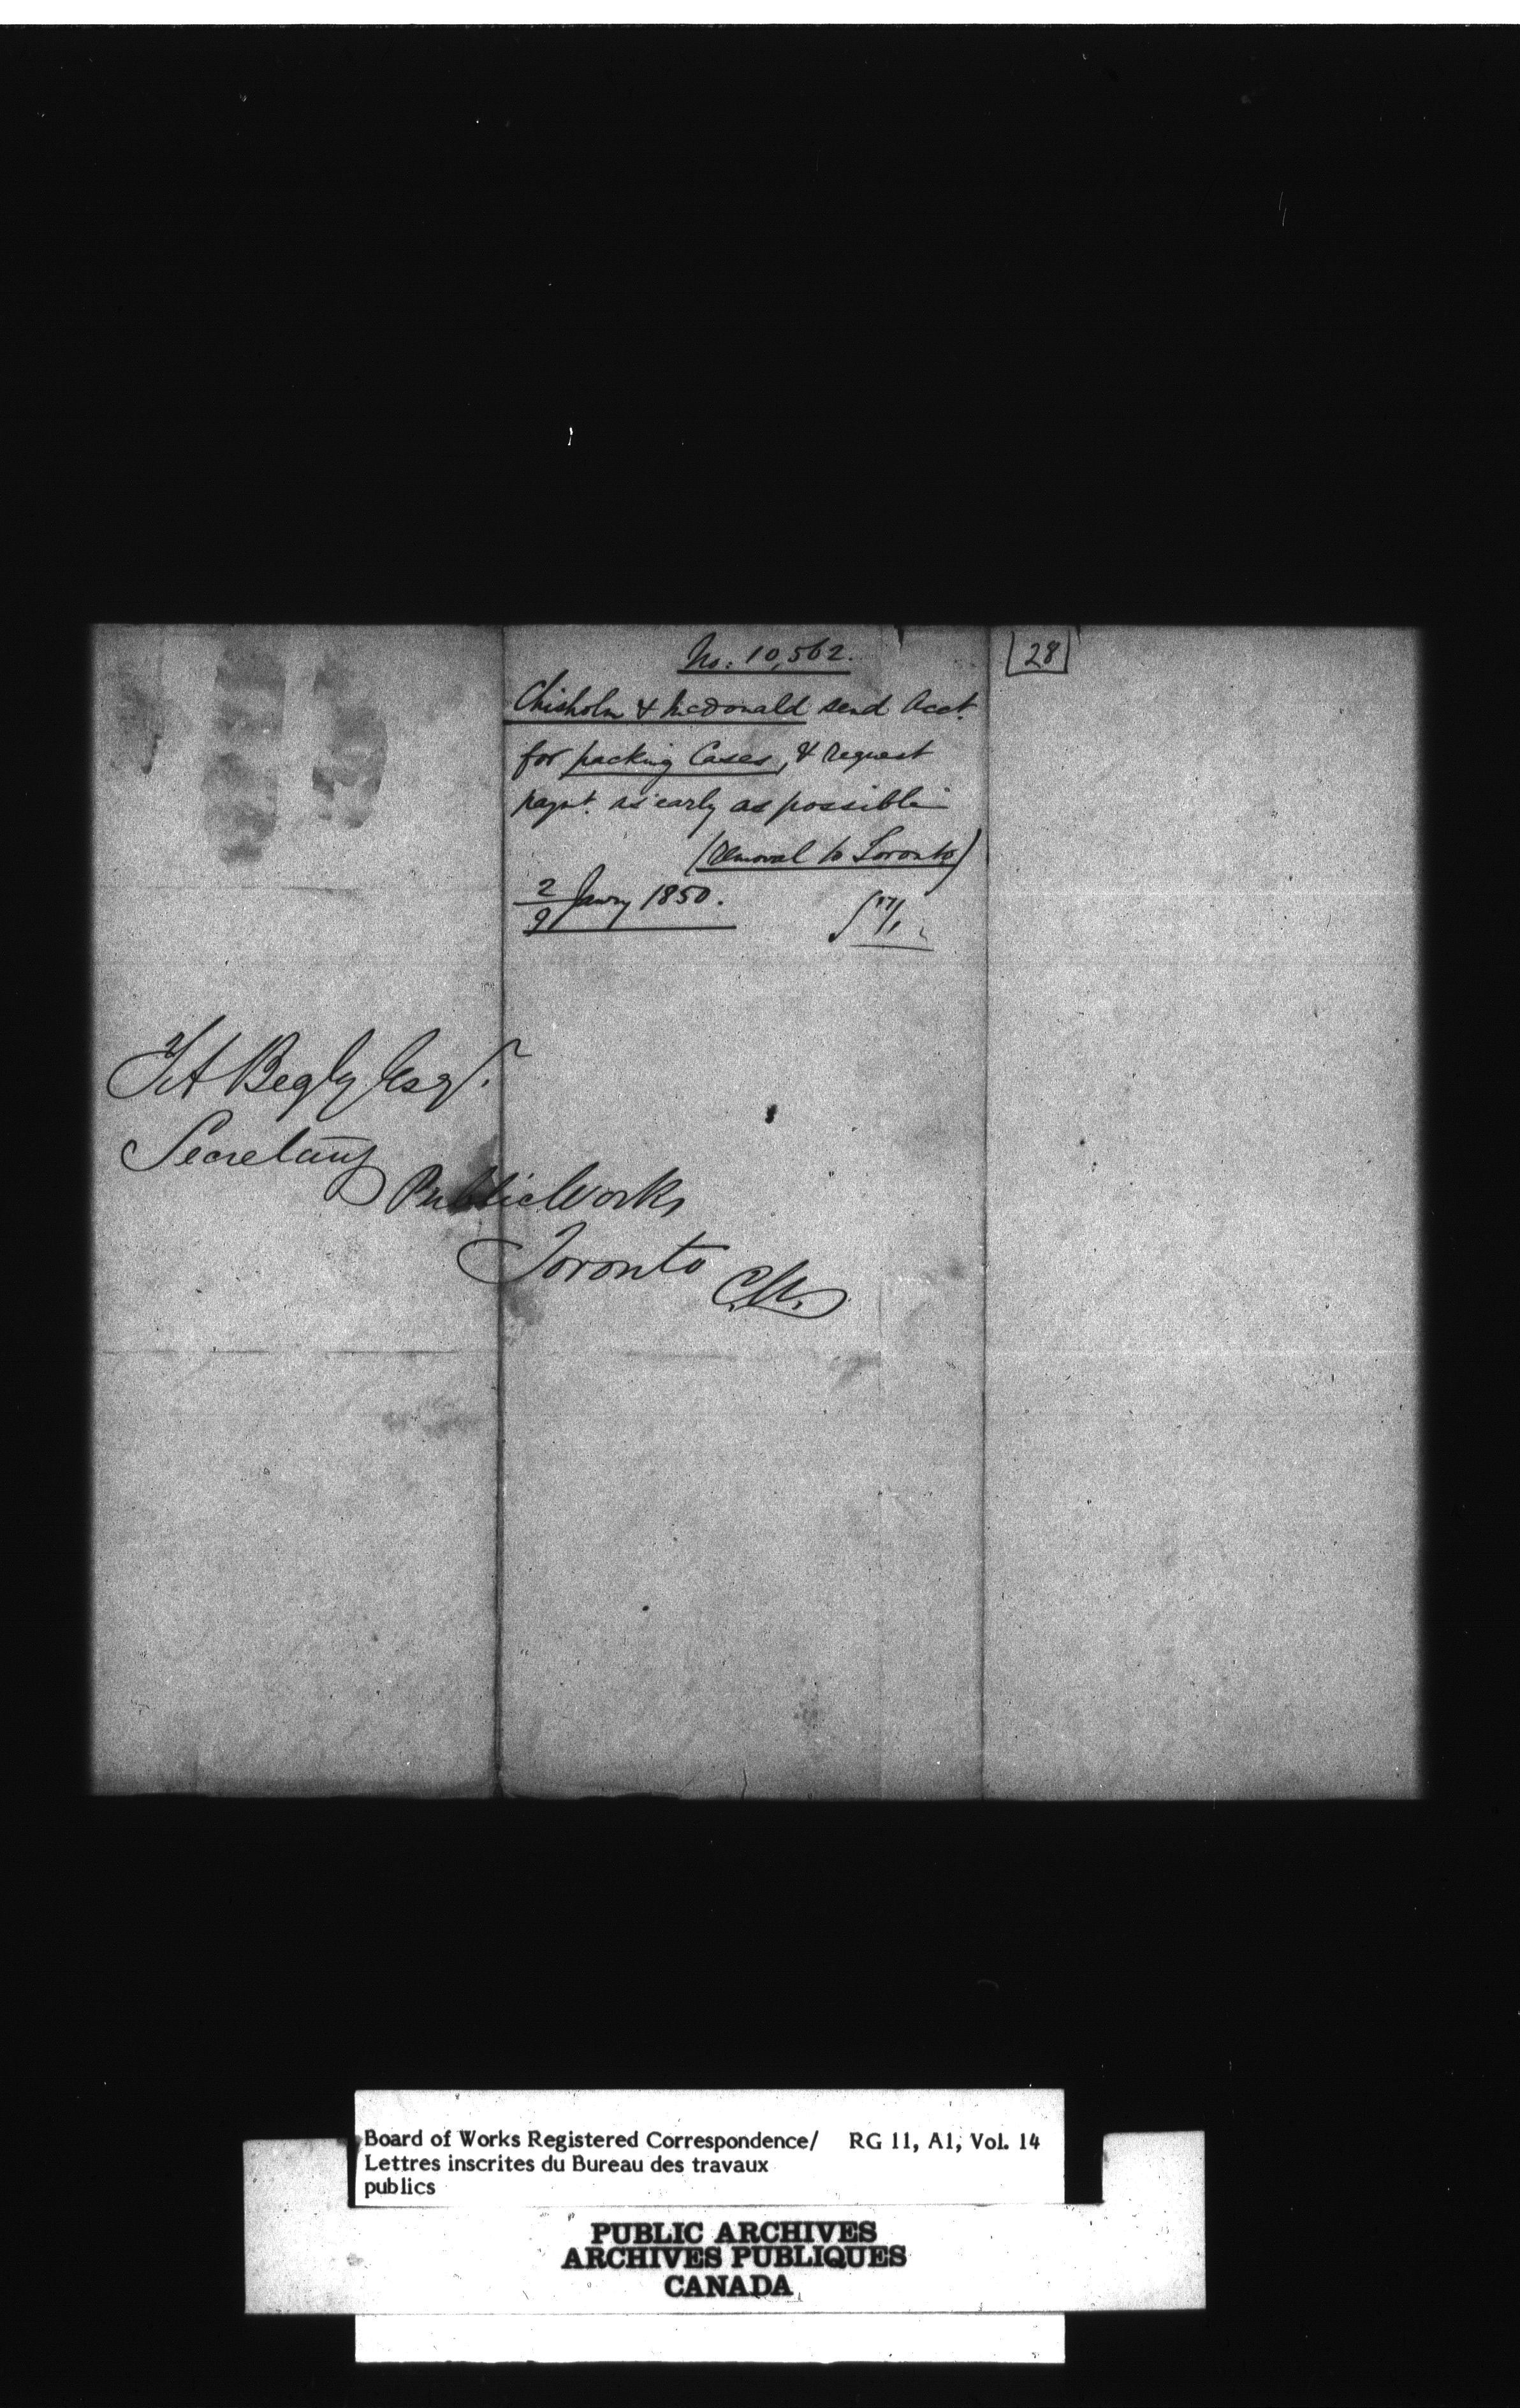 No: 10,562.
28
Chisholm & McDonald send Acct.
for packing Cases, & request
paymt. as early as possible
(Removal to Toronto)
2/9 Jany 1850.
T A Begly Esqr.
Secretary
Public Works
Toronto C.W.
Board of Works Registered Correspondence/ RG 11, A1, Vol. 14
Lettres inscrites du Bureau des travaux
publics
PUBLIC ARCHIVES
ARCHIVES PUBLIQUES
CANADA